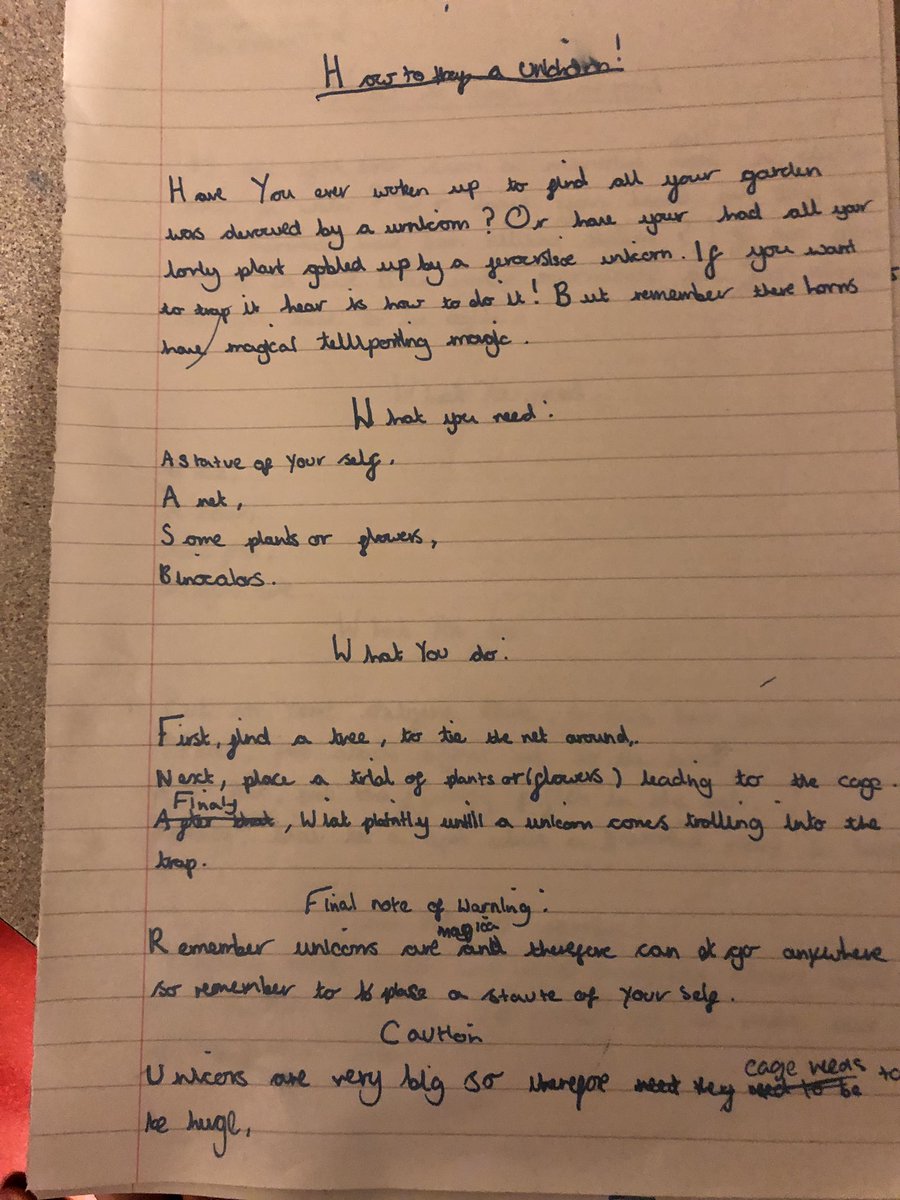 How to trap a unichion!
Have You ever woken up to find all your garden
was devowed by a urnicorn? Or have your had all your
lovly plant gobled up by a unicorn. If you want
to trap it hear is how to do it! But remember there horns
have magical magic.
What you need:
A statue of your self,
A net,
Some plants or flowers,
Binocalors.
What You do:
First, find a tree, to tie the net around.
Next, place a trial of plants or (flowers) leading to the cage.
Finaly
After that, Wiat untill a unicorn comes trolling into the
trap.
Final note of Warning:
magica
Remember unicorns are and therefore can go anywhere
so remember to plase a staute of your self.
Caution
cage needs to
Unicors are very big so therefore need they need to be
be huge,